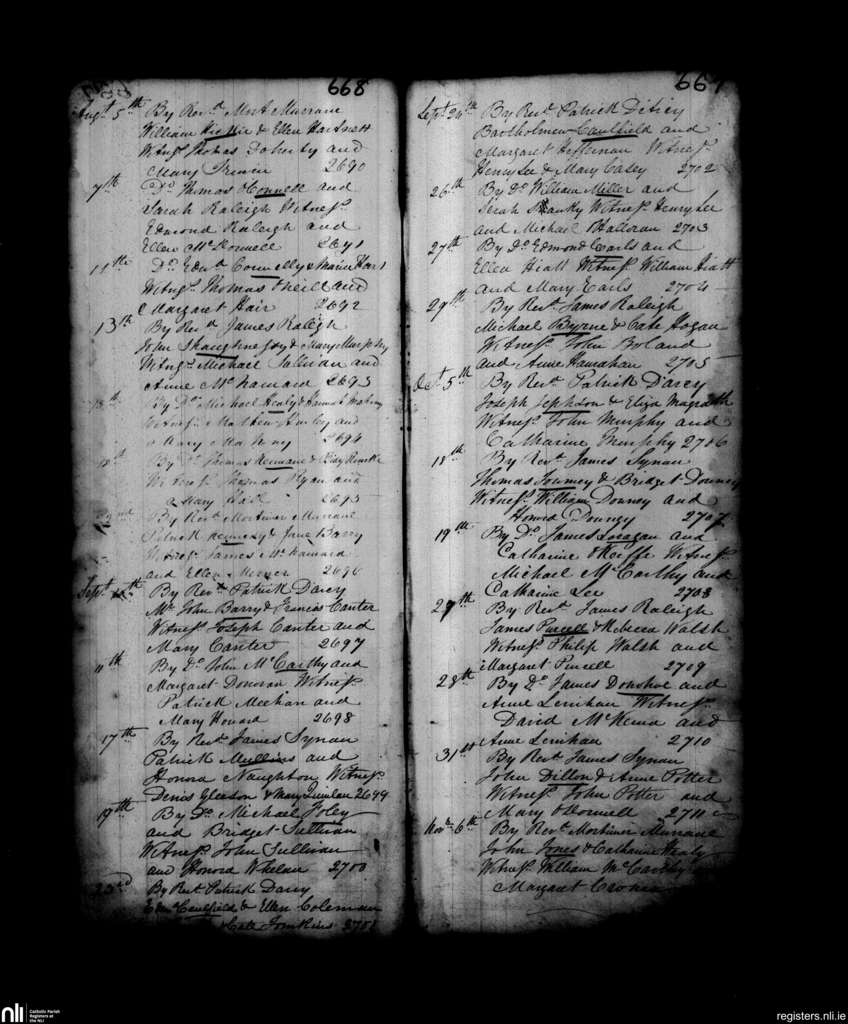 668
Augt. 5th By Revd. Mort Murrane
William Hickie & Ellen Hartnett
Witnss. Thomas Doherty and
Mary Prenir 2690
7th Do. Thomas O Connell and
Sarah Raleigh Witness.
Edmond Raleigh and
Ellen McDonnell 2691
11th Do. Edwd. Connelly & Maria Hart
Witnss. Thomas Oneill and
Margaret Hair 2692
13th By Revd. James Raleigh
John Shaughnessy & Mary Murphy
Witnss. Michael Sullivan and
Anne McNamara 2693
By Do. Michael Healy &
Witness. Mathew Hurley and
Mary Mahony 2694
18th By Do. Thomas Kennane &
Witness. Thomas Ryan and
Mary 2695
By Revd. Mortimer Murrane
Patrick Kennedy & Jane Barry
Witness. James McNamara
and Ellen 2696
Sept. By Revd. Patrick Darcy
Mr. John Barry & Francis Canter
Witness. Joseph Canter and
Mary Canter 2697
11th By Do. John McCarthy and
Margaret Donovan Witness.
Patrick Meehan and
Mary Howard 2698
17th By Revd. James Synan
Patrick Mullins and
Honora Naughton Witness.
Denis Gleeson & Mary Quinlan 2699
19th By Do. Michael Foley
and Bridget Sullivan
Witness. John Sullivan
and Honora Whelan 2700
23rd By Revd. Patrick Darcy
Caulfield & Ellen Coleman
& Cate Tomkins 2701
Sept. 24th By Revd. Patrick
Bartholmew Caulfield and
Margaret Heffernan Witness.
Henry Lee & Mary Casey 2702
26th By Do. William Miller and
Serah Witness Henry Lee
and Michael OHalloran 2703
27th By Do. Edmond Earls and
Ellen Hiatt Witness. William Hiatt
and Mary Earls 2704
29th By Revd. James Raleigh
Michael Byrne & Cate Hogan
Witness. John Boland
and Anne Hanrahan 2705
Oct. 5th By Revd. Patrick Darcy
Joseph Jephson & Eliza Magrath
Witness. John Murphy and
Catharine Murphy 2706
18th By Revd. James Synan
Thomas Tourney & Bridget Downey
Witness. William Downey and
Honora Downey 2707
19th By Do. James Loragan and
Catharine OKeiffe Witness.
Michael McCarthy and
Catharine Lee 2708
27th By Revd. James Raleigh
James Purcell & Rebecca Walsh
Witness. Philip Walsh and
Margaret Purcell 2709
28th By Do. James Donohoe and
Anne Lenihan Witness.
David McKenna and
Anne Lenihan 2710
31st By Revd. James Synan
John Dillon & Anne Potter
Witness. John Potter and
Mary ODonnell 2711
Novr. 6th By Revd. Mortimer Murrane
John Jones & Catharine Healy
Witness. William McCarthy
Margaret Cronin
nli Catholic Parish
Registers at
the NLI
registers.nli.ie